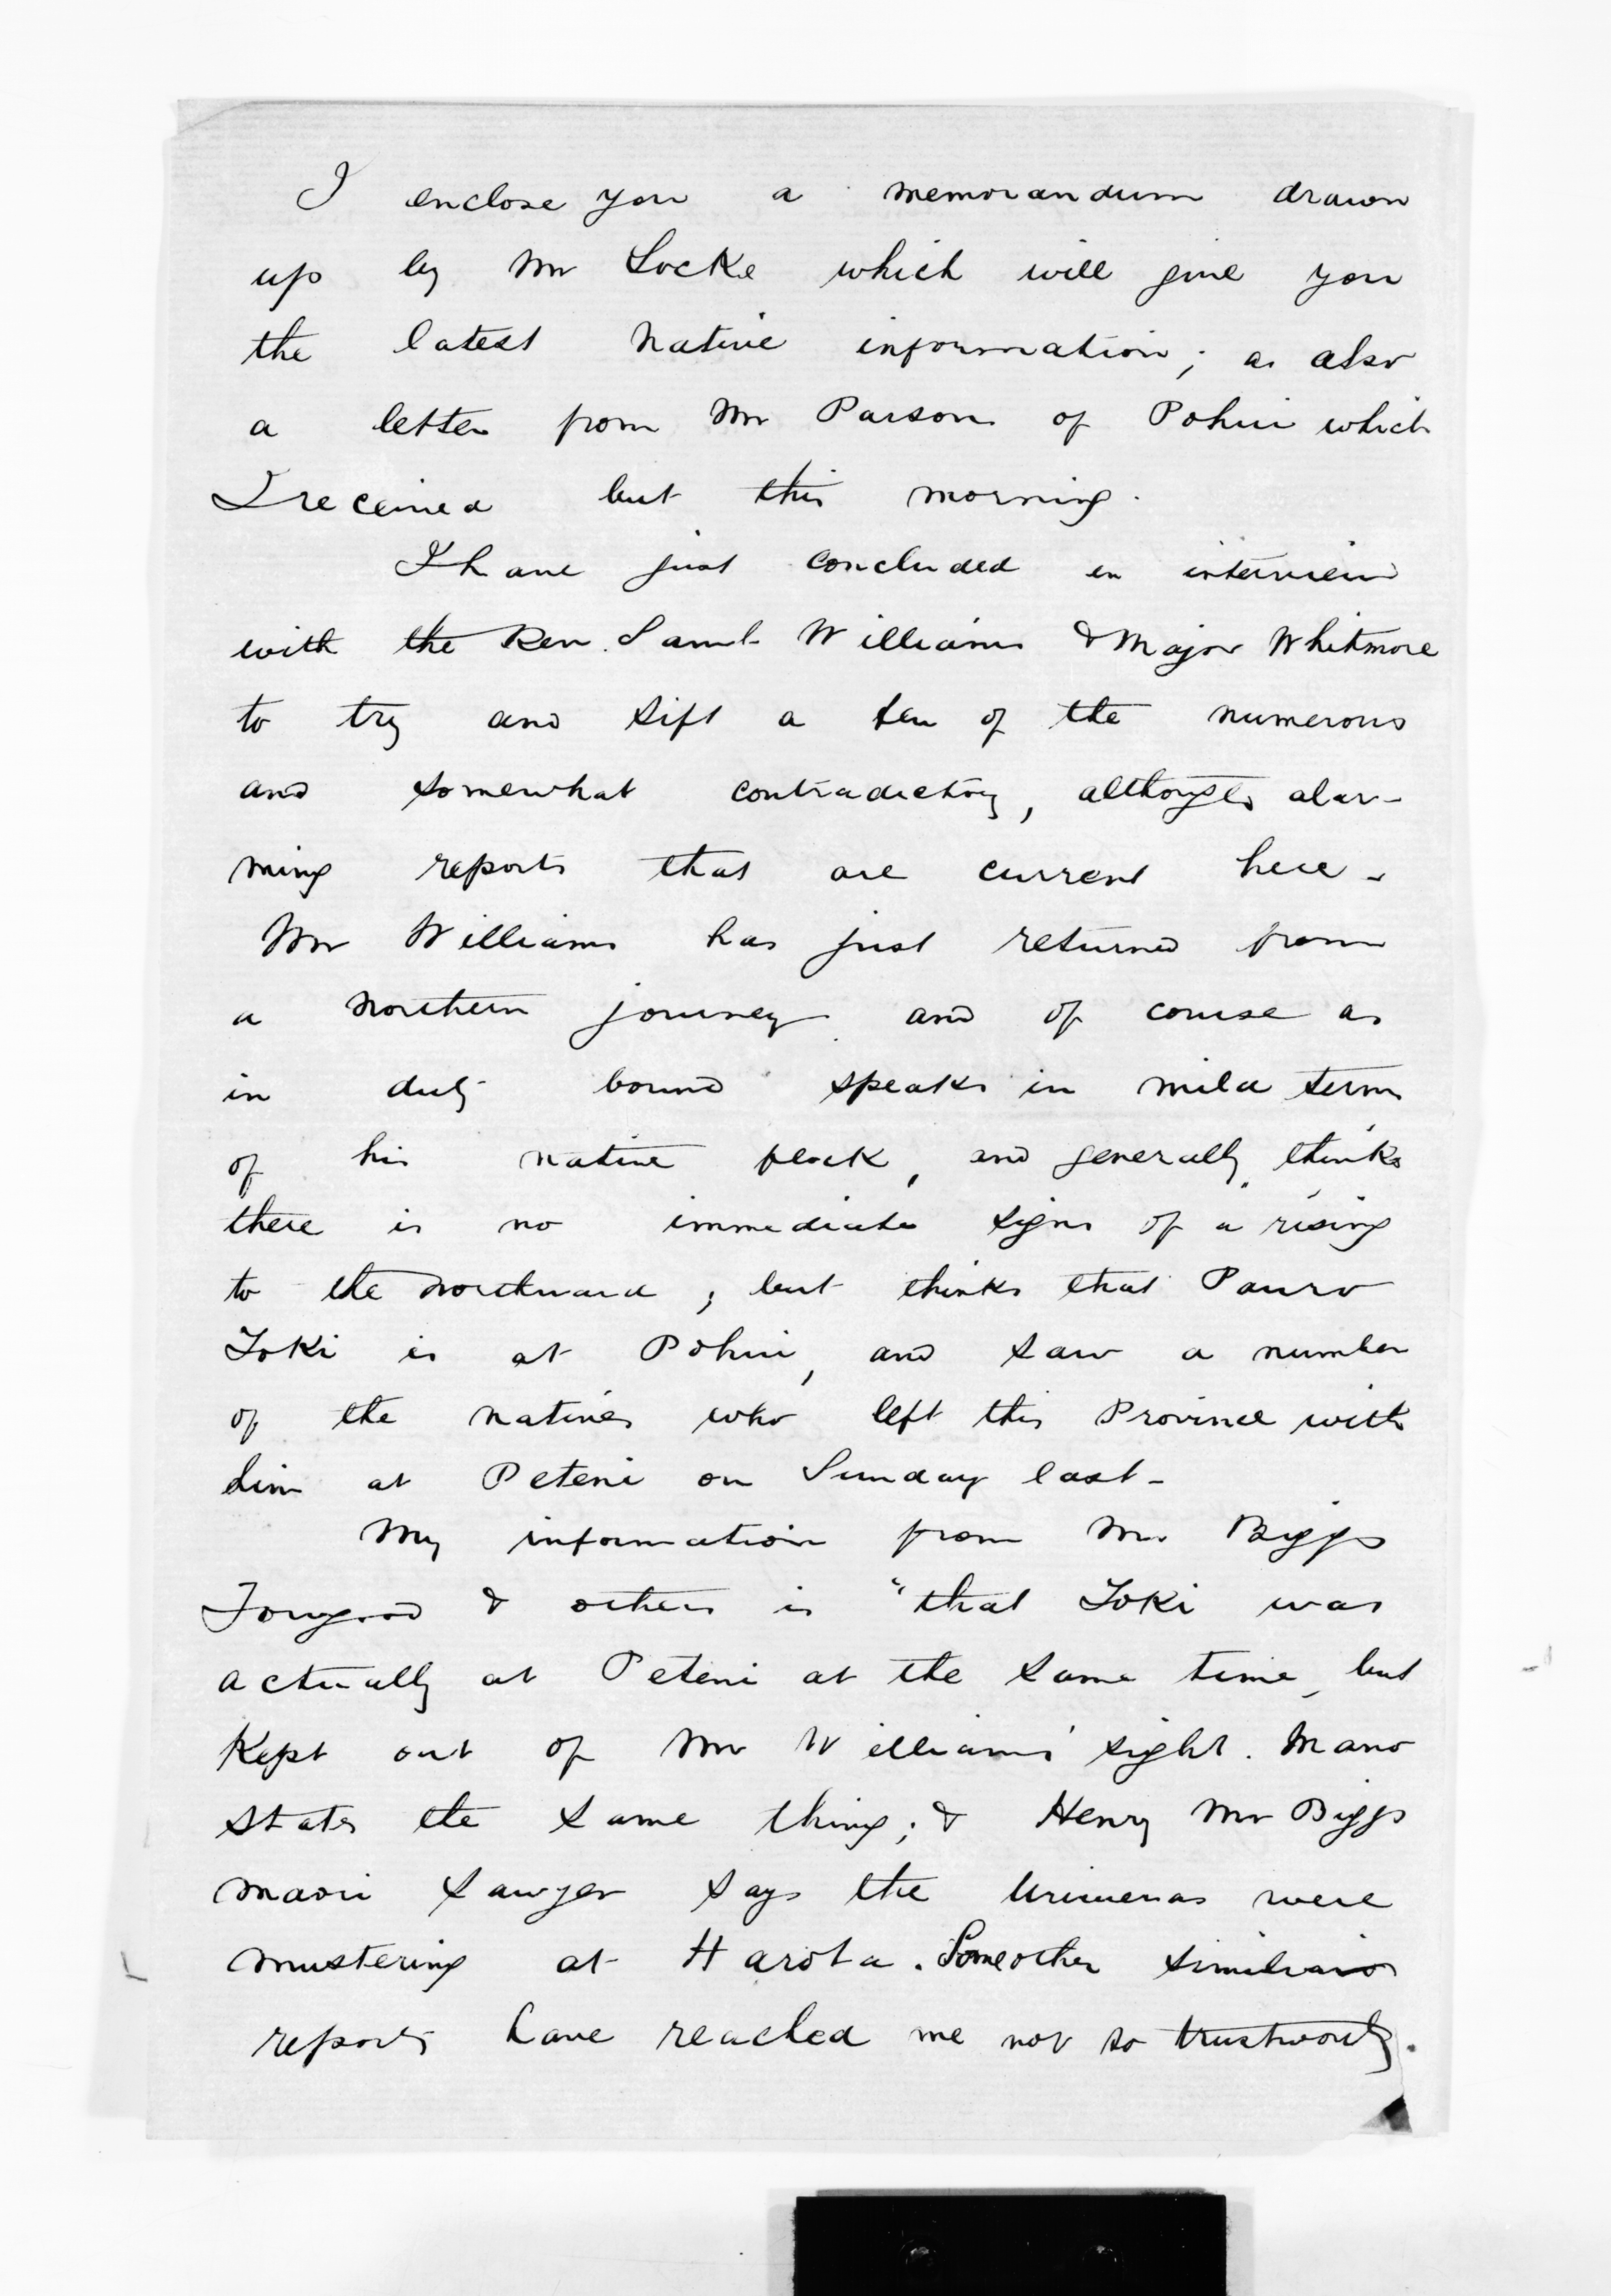 I enclose you a memorandum drawn
up by Mr Locke which will give you
the latest native information; as also
a letter from Mr Parsons of Pohui which
I received but this morning.
I have just concluded an interview
with the Rev. Saml. Williams & Major Whitmore
to try and sift a few of the numerous
and somewhat contradictory, although alar-
ming reports that are current here -
Mr Williams has just returned from
a northern journey and of course as
in duty bound speaks in mild terms
of his native flock, and generally thinks
there is no immediate signs of a rising
to the northward; but thinks that Pauro
Toki is at Pohui, and saw a number
of the natives who left this Province with
him at Peteni on Sunday last -
My information from Mr Biggs
Towgood & others is "that Toki was
actually at Peteni at the same time, but
kept out of Mr Williams' sight. Mano
states the same thing; & Henry Mr Biggs
maori sawyer says the Uriweras were
mustering at Haroto. Some other similiar
reports have reached me not so trustworthy.